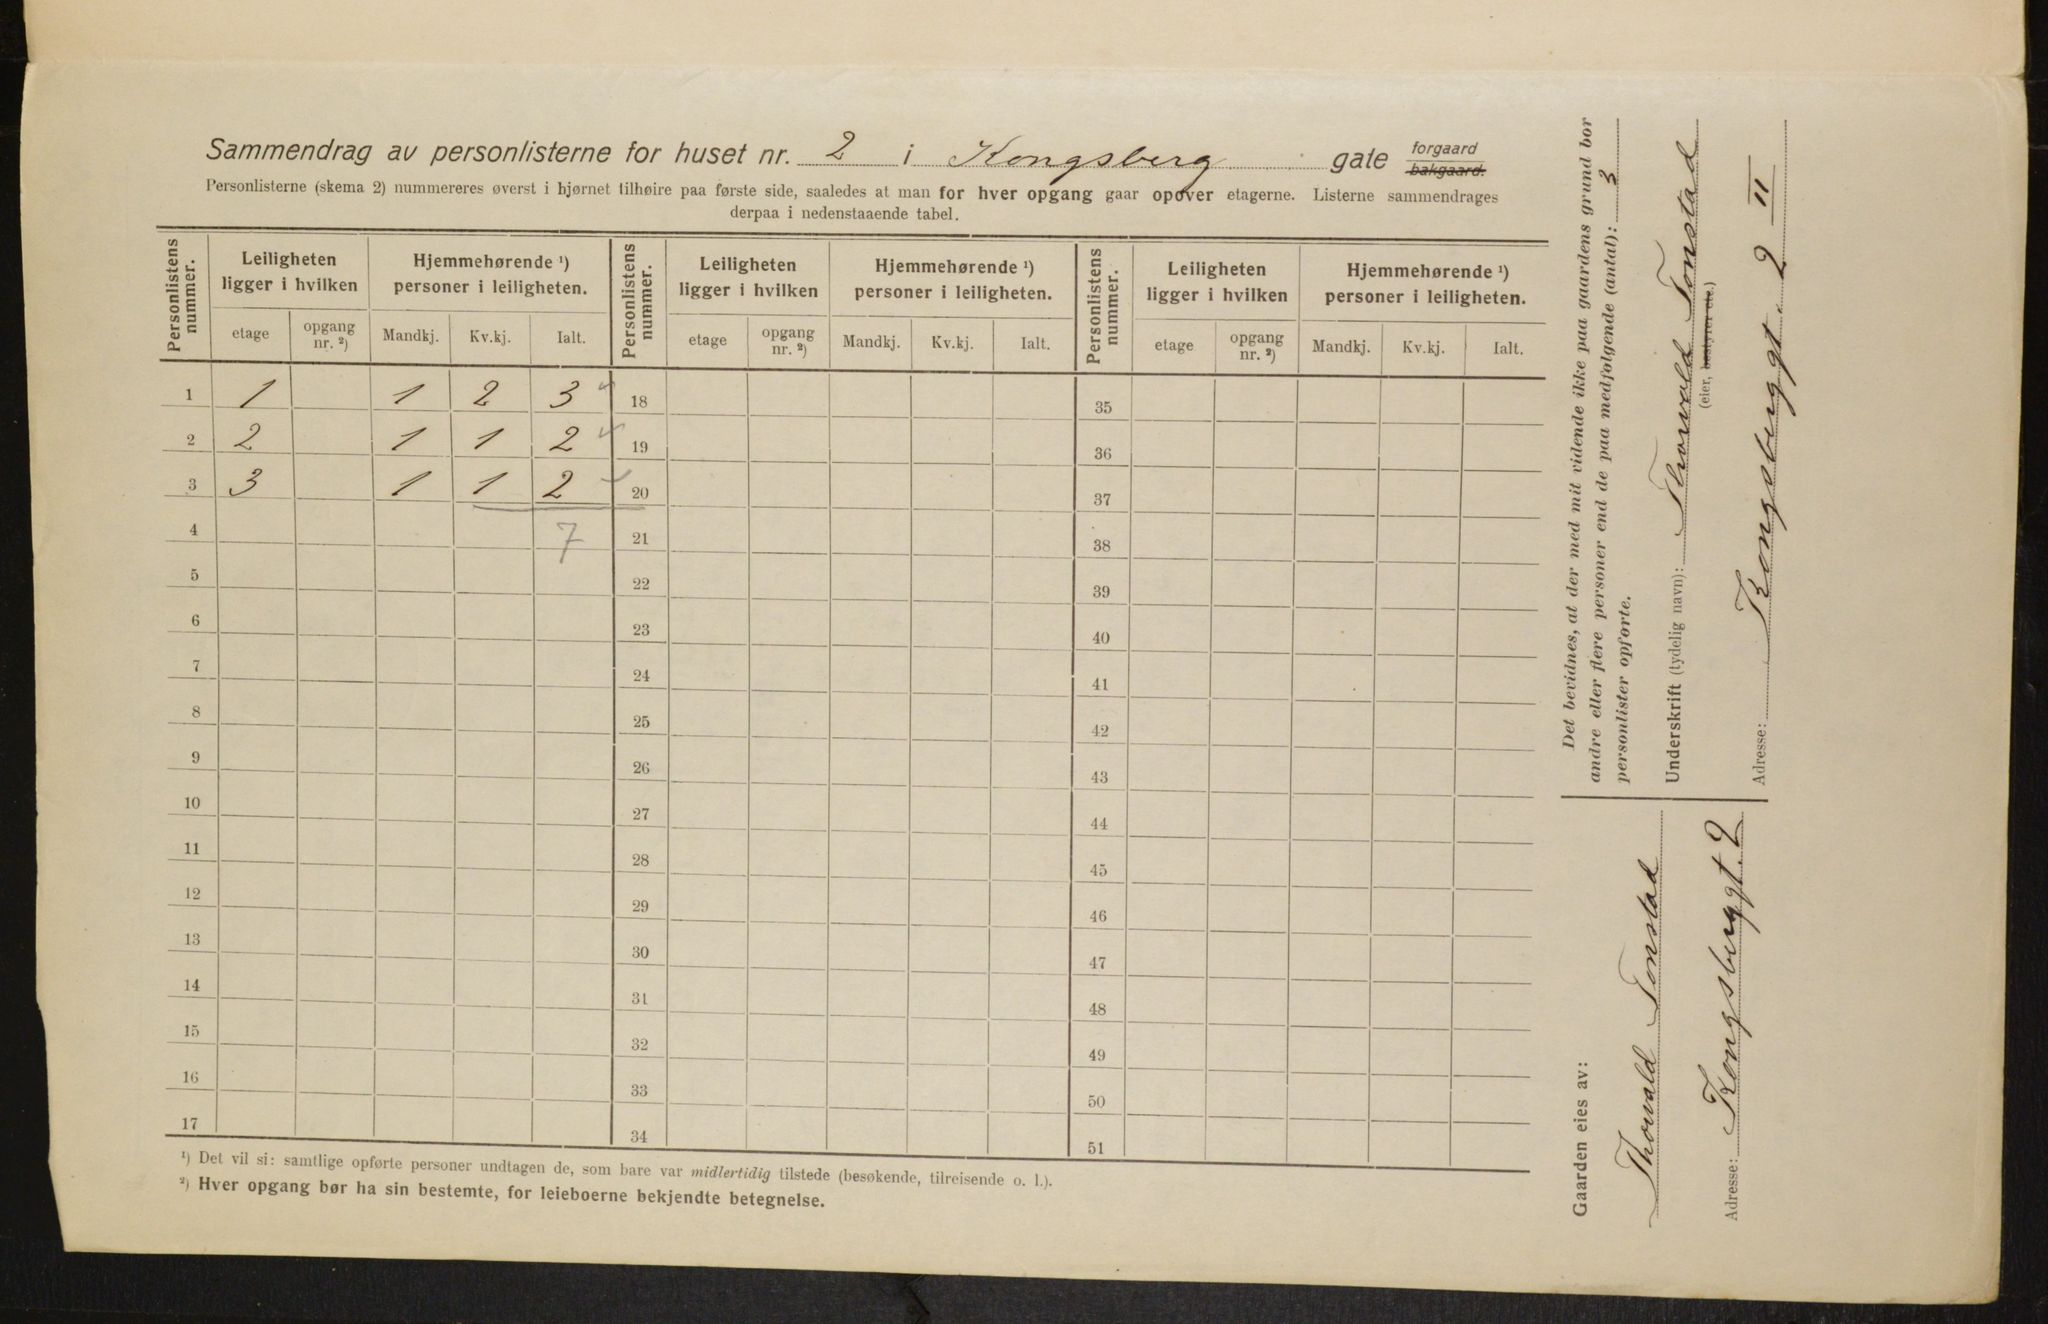 Sammendrag av personlisterne for huset nr. 2 i Kongsberg gate forgaard bakgaard.
Personlisterne (skema 2) nummereres øverst i hjørnet tilhøire paa første side, saaledes at man for hver opgang gaar opover etagerne. Listerne sammendrages
derpaa i nedenstaaende tabel.
Personlistens nummer. Leiligheten ligger i hvilken Hjemmehørende ¹) personer i leiligheten. Personlistens nummer. Leiligheten ligger i hvilken Hjemmehørende ¹) personer i leiligheten. Personlistens nummer. Leiligheten ligger i hvilken Hjemmehørende ¹) personer i leiligheten.
etage opgang nr. ²) Mandkj. Kv.kj. Ialt. etage opgang nr. ²) Mandkj. Kv.kj. Ialt. etage opgang nr. ²) Mandkj. Kv.kj. Ialt.
1 1 1 2 3 18 35
2 2 1 1 2 19 36
3 3 1 1 2 20 37
4 7 21 38
5 22 39
6 23 40
7 24 41
8 25 42
9 26 43
10 27 44
11 28 45
12 29 46
13 30 47
14 31 48
15 32 49
16 33 50
17 34 51
¹) Det vil si: samtlige opførte personer undtagen de, som bare var midlertidig tilstede (besøkende, tilreisende o. l.).
²) Hver opgang bør ha sin bestemte, for leieboerne bekjendte betegnelse.
Det bevidnes, at der med mit vidende ikke paa gaardens grund bor
andre eller flere personer end de paa medfølgende (antal): 3
personlister opførte.
Underskrift (tydelig navn): Thorvald Tonstad
(eier, bestyrer etc.)
Adresse: Kongsberggt. 2 II
Gaarden eies av:
Thorvald Tonstad
Adresse: Kongsberggt. 2